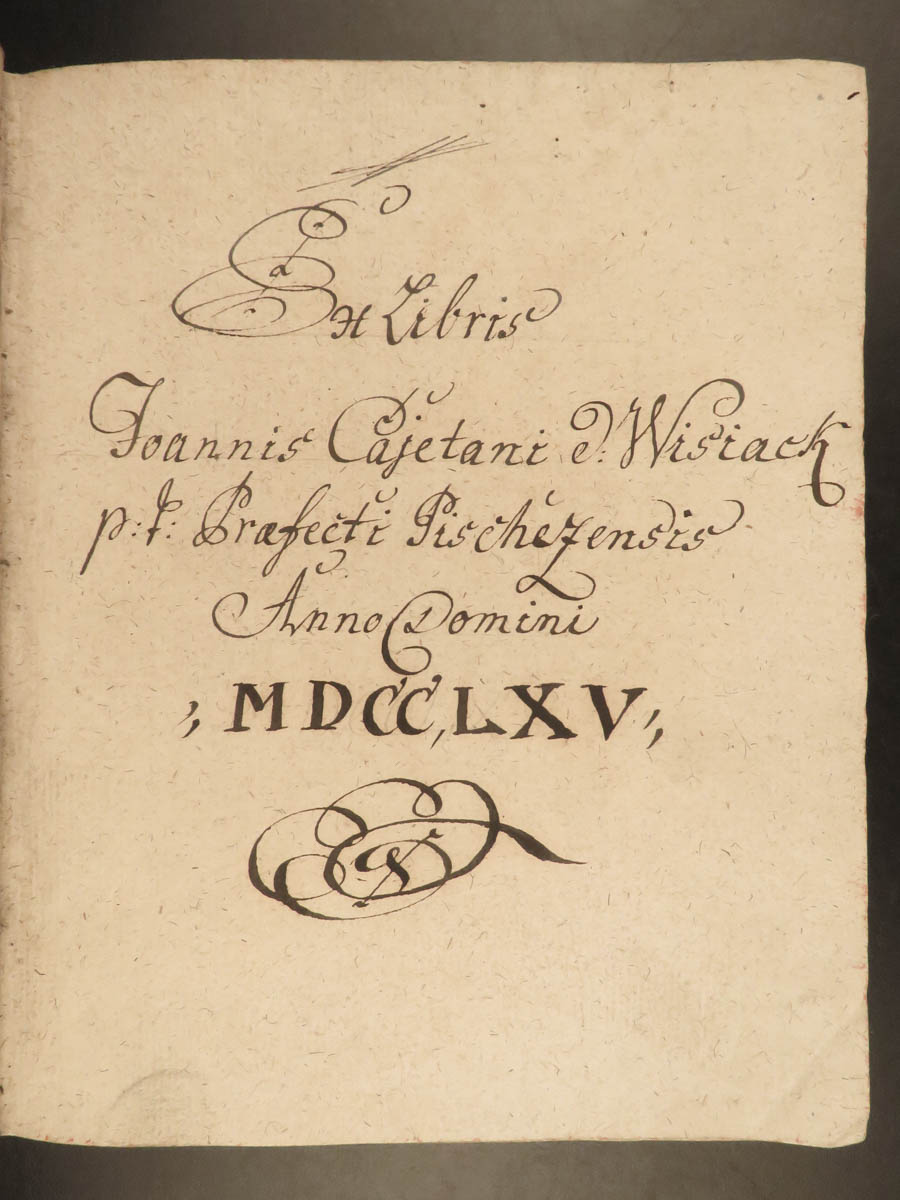 Ex Libris
Joannis Cajetani d: Wisiack
p: t: Præfecti Pischezensis
Anno Domini
, MDCC, LXV,,